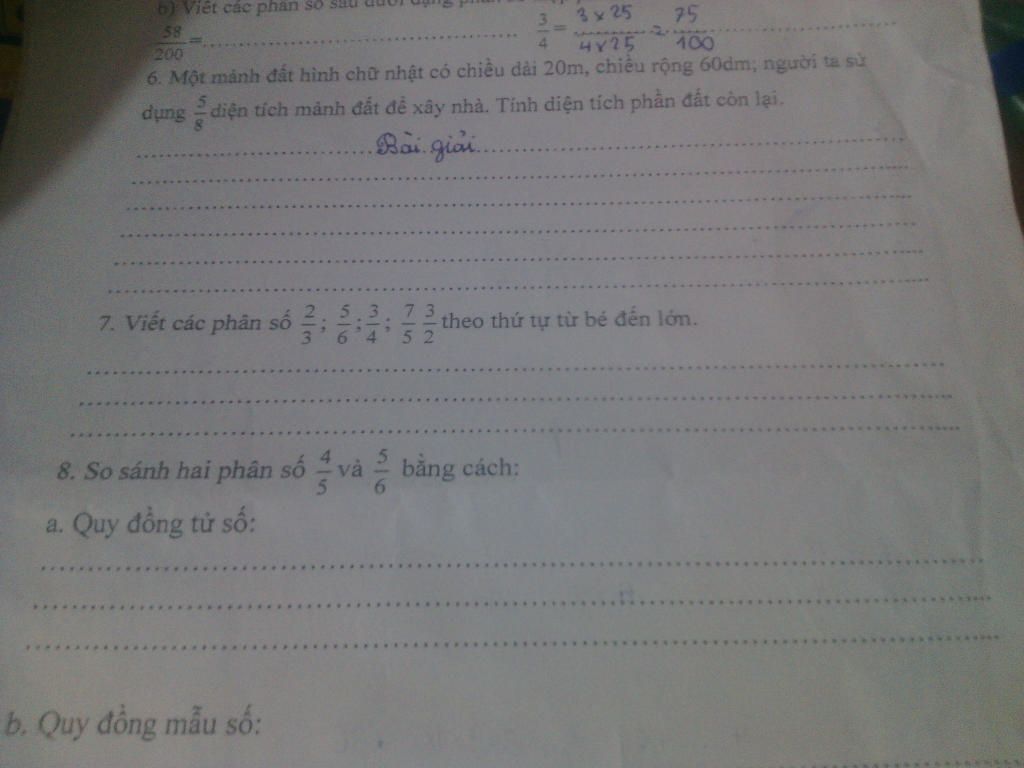 b) Viết các phân số sau dưới dạng phân số
58/200 = .......... 3/4 = 3 x 25 / 4 x 25 = 75/100
6. Một mảnh đất hình chữ nhật có chiều dài 20m, chiều rộng 60dm; người ta sử
dụng 5/8 diện tích mảnh đất để xây nhà. Tính diện tích phần đất còn lại.
Bài giải
7. Viết các phân số 2/3; 5/6; 3/4; 7/5 3/2 theo thứ tự từ bé đến lớn.
8. So sánh hai phân số 4/5 và 5/6 bằng cách:
a. Quy đồng tử số:
b. Quy đồng mẫu số: